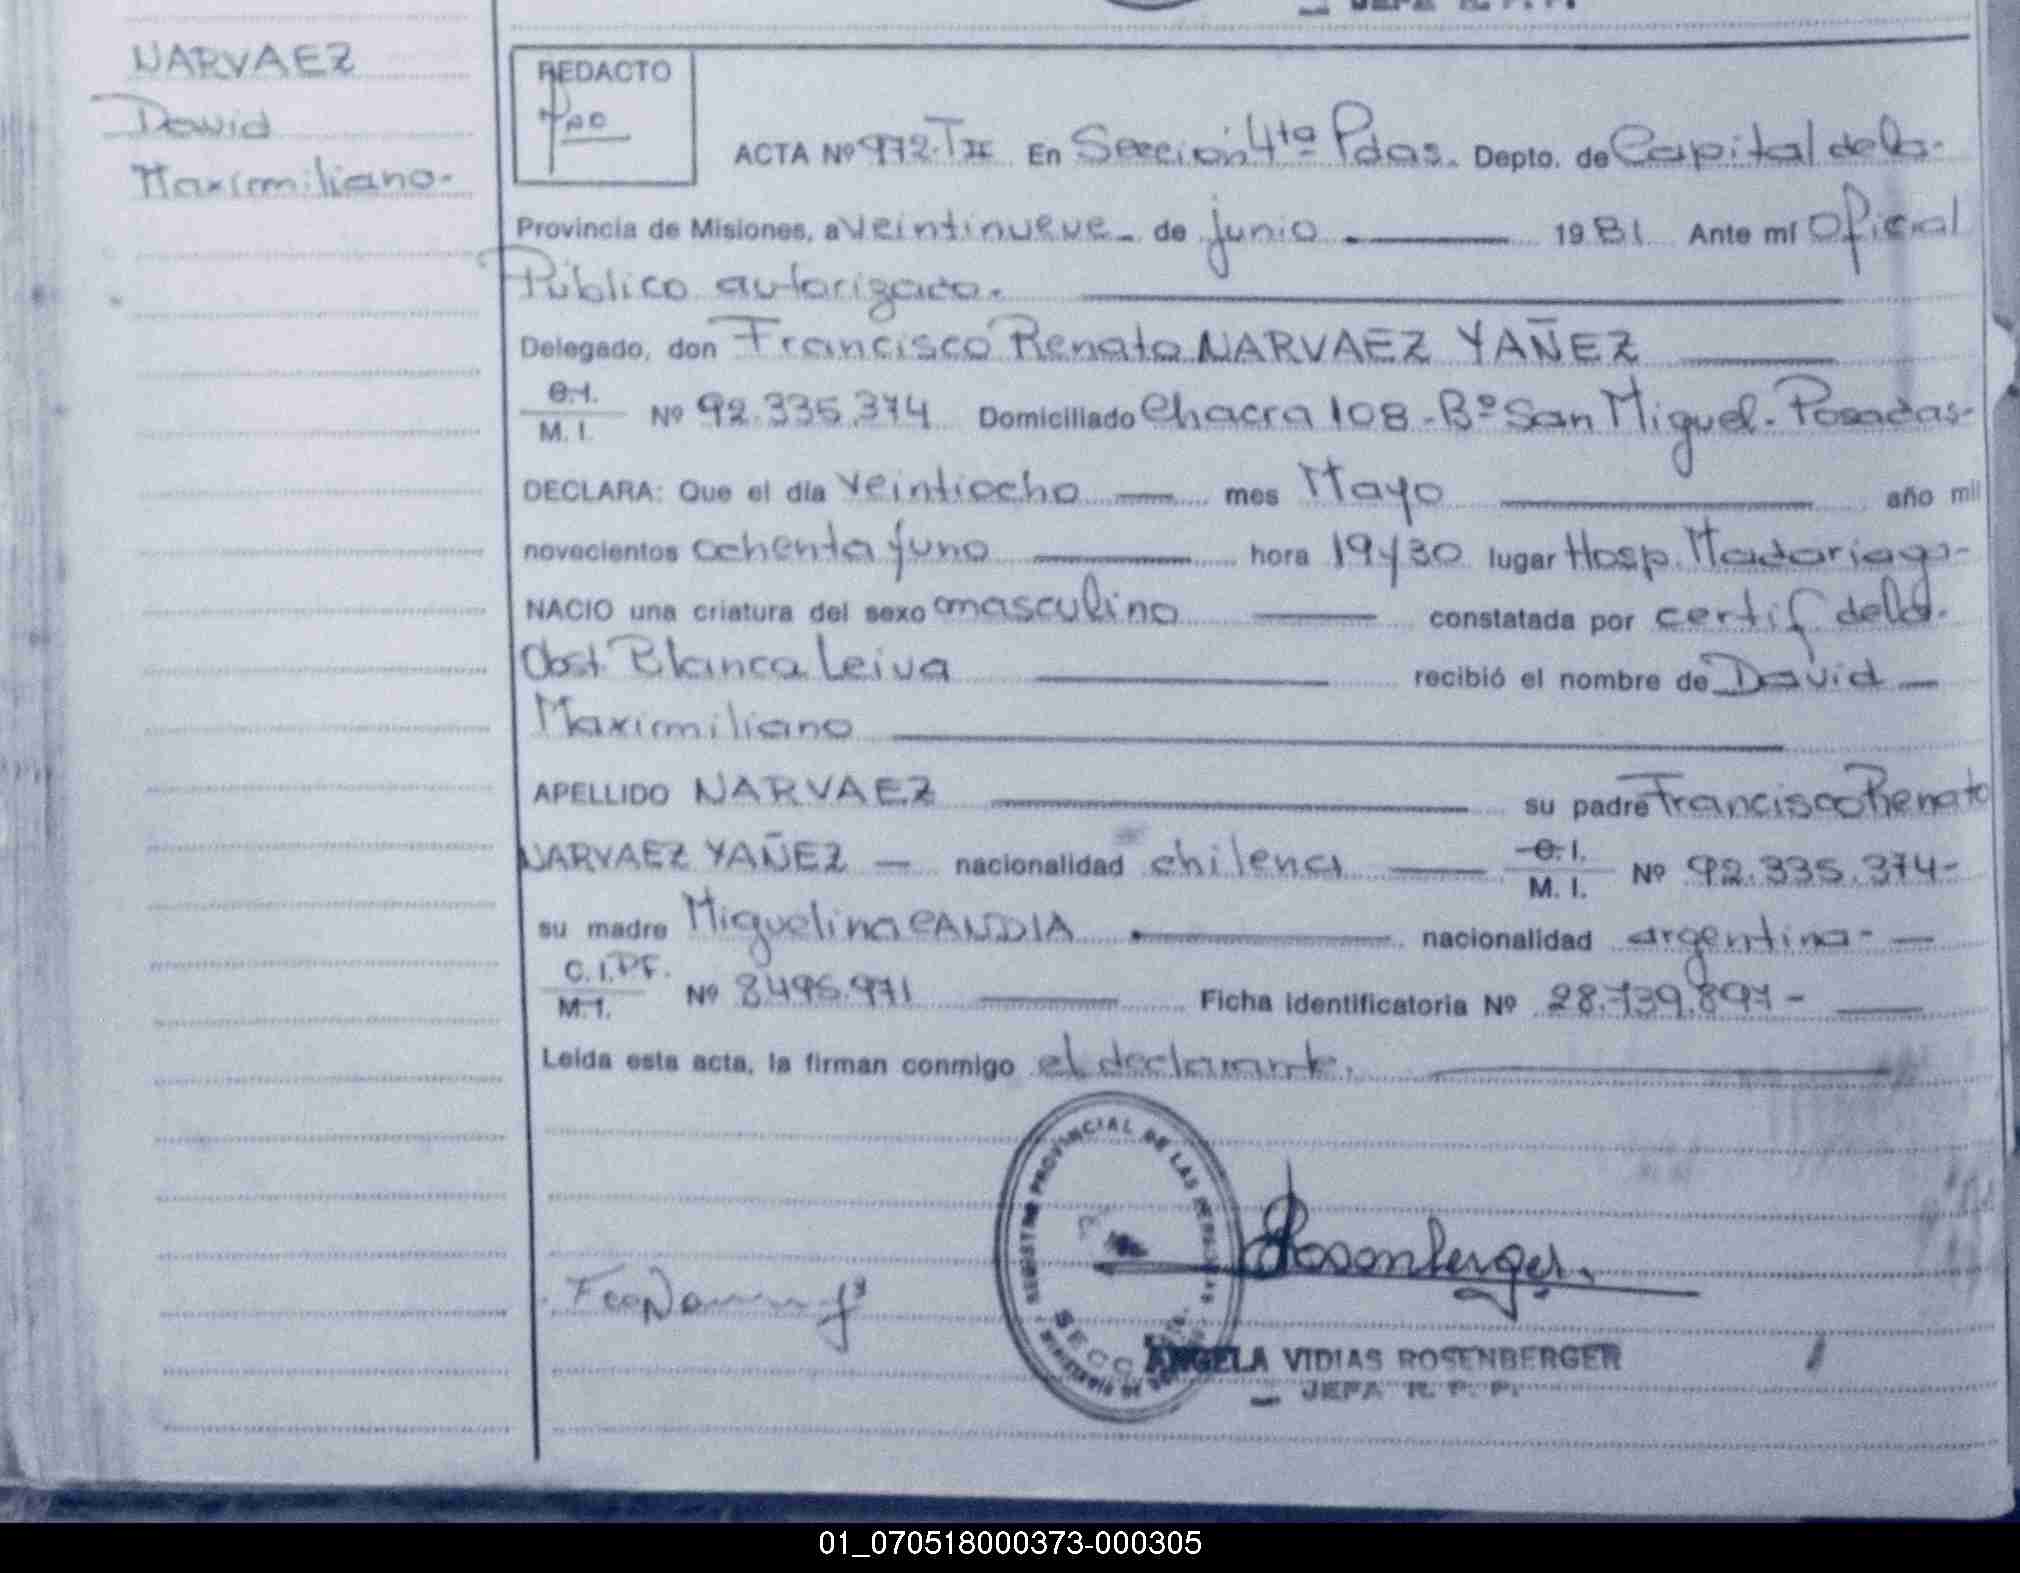 JEFA R. P. P.
NARVAEZ
David
Maximiliano.
REDACTO
ACTA Nº 972.TII En Sección 4ta Pdas. Depto. de Capital de la.
Provincia de Misiones, a veintinueve de junio 1981 Ante mí Oficial
Público autorizado.
Delegado, don Francisco Renato NARVAEZ YAÑEZ
C.I.
M. I. Nº 92.335.374 Domiciliado Chacra 108 - Bº San Miguel - Posadas-
DECLARA: Que el día veintiocho mes Mayo año mil
novecientos ochenta y uno hora 19 y 30 lugar Hosp. Madariaga-
NACIO una criatura del sexo masculino constatada por certif de la.
Obst. Blanca Leiva recibió el nombre de David
Maximiliano
APELLIDO NARVAEZ su padre Francisco Renato
NARVAEZ YAÑEZ nacionalidad chilena C. I.
M. I. Nº 92.335.374-
su madre Miguelina CANDIA nacionalidad argentina-
C. I. PF.
M. I. Nº 8.495.971 Ficha identificatoria Nº 28.739.897-
Leída esta acta, la firman conmigo el declarante.
REGISTRO PROVINCIAL DE LAS PERSONAS
SECC
Rosenberger.
ANGELA VIDIAS ROSENBERGER
JEFA R. P. P.
01_070518000373-000305